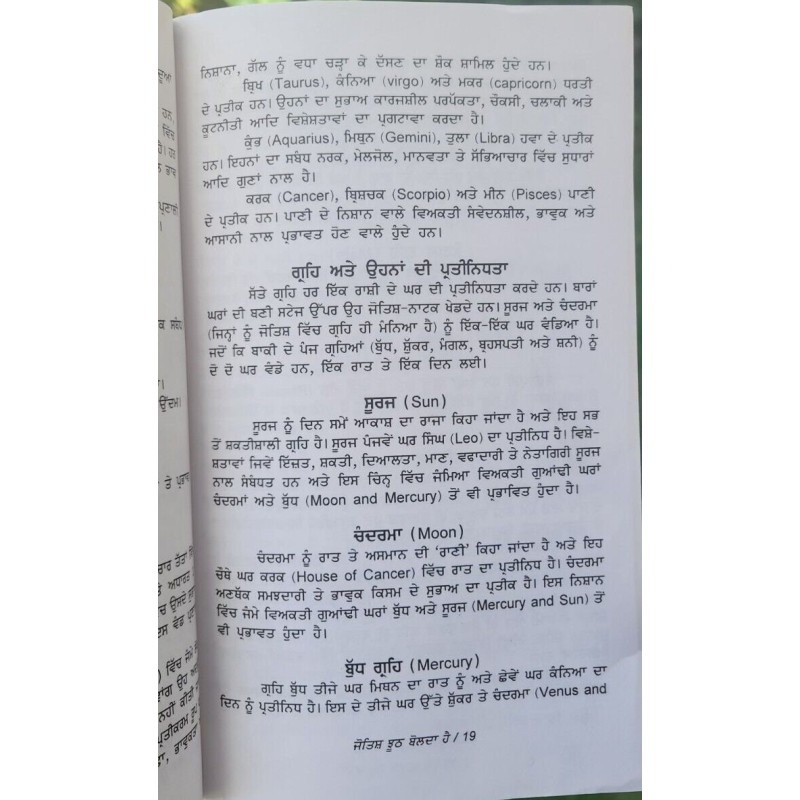 ਨਿਸ਼ਾਨਾ, ਗੱਲ ਨੂੰ ਵਧਾ ਚੜ੍ਹਾ ਕੇ ਦੱਸਣ ਦਾ ਸ਼ੌਕ ਸ਼ਾਮਿਲ ਹੁੰਦੇ ਹਨ।
ਬ੍ਰਿਖ (Taurus), ਕੰਨਿਆ (virgo) ਅਤੇ ਮਕਰ (capricorn) ਧਰਤੀ
ਦੇ ਪ੍ਰਤੀਕ ਹਨ। ਉਹਨਾਂ ਦਾ ਸੁਭਾਅ ਕਾਰਜਸ਼ੀਲ ਪਰਪੱਕਤਾ, ਚੌਕਸੀ, ਚਲਾਕੀ ਅਤੇ
ਕੂਟਨੀਤੀ ਆਦਿ ਵਿਸ਼ੇਸ਼ਤਾਵਾਂ ਦਾ ਪ੍ਰਗਟਾਵਾ ਕਰਦਾ ਹੈ।
ਕੁੰਭ (Aquarius), ਮਿਥੁਨ (Gemini), ਤੁਲਾ (Libra) ਹਵਾ ਦੇ ਪ੍ਰਤੀਕ
ਹਨ। ਇਹਨਾਂ ਦਾ ਸਬੰਧ ਨਰਕ, ਮੇਲਜੋਲ, ਮਾਨਵਤਾ ਤੇ ਸੱਭਿਆਚਾਰ ਵਿੱਚ ਸੁਧਾਰਾਂ
ਆਦਿ ਗੁਣਾਂ ਨਾਲ ਹੈ।
ਕਰਕ (Cancer), ਬ੍ਰਿਸ਼ਚਕ (Scorpio) ਅਤੇ ਮੀਨ (Pisces) ਪਾਣੀ
ਦੇ ਪ੍ਰਤੀਕ ਹਨ। ਪਾਣੀ ਦੇ ਨਿਸ਼ਾਨ ਵਾਲੇ ਵਿਅਕਤੀ ਸੰਵੇਦਨਸ਼ੀਲ, ਭਾਵੁਕ ਅਤੇ
ਆਸਾਨੀ ਨਾਲ ਪ੍ਰਭਾਵਤ ਹੋਣ ਵਾਲੇ ਹੁੰਦੇ ਹਨ।
ਗ੍ਰਹਿ ਅਤੇ ਉਹਨਾਂ ਦੀ ਪ੍ਰਤੀਨਿਧਤਾ
ਸੱਤੇ ਗ੍ਰਹਿ ਹਰ ਇੱਕ ਰਾਸ਼ੀ ਦੇ ਘਰ ਦੀ ਪ੍ਰਤੀਨਿਧਤਾ ਕਰਦੇ ਹਨ। ਬਾਰਾਂ
ਘਰਾਂ ਦੀ ਬਣੀ ਸਟੇਜ ਉੱਪਰ ਉਹ ਜੋਤਿਸ਼-ਨਾਟਕ ਖੇਡਦੇ ਹਨ। ਸੂਰਜ ਅਤੇ ਚੰਦਰਮਾ
(ਜਿਨ੍ਹਾਂ ਨੂੰ ਜੋਤਿਸ਼ ਵਿੱਚ ਗ੍ਰਹਿ ਹੀ ਮੰਨਿਆ ਹੈ) ਨੂੰ ਇੱਕ-ਇੱਕ ਘਰ ਵੰਡਿਆ ਹੈ।
ਜਦੋਂ ਕਿ ਬਾਕੀ ਦੇ ਪੰਜ ਗ੍ਰਹਿਆਂ (ਬੁੱਧ, ਸ਼ੁੱਕਰ, ਮੰਗਲ, ਬ੍ਰਹਸਪਤੀ ਅਤੇ ਸ਼ਨੀ) ਨੂੰ
ਦੋ ਦੋ ਘਰ ਵੰਡੇ ਹਨ, ਇੱਕ ਰਾਤ ਤੇ ਇੱਕ ਦਿਨ ਲਈ।
ਸੂਰਜ (Sun)
ਸੂਰਜ ਨੂੰ ਦਿਨ ਸਮੇਂ ਆਕਾਸ਼ ਦਾ ਰਾਜਾ ਕਿਹਾ ਜਾਂਦਾ ਹੈ ਅਤੇ ਇਹ ਸਭ
ਤੋਂ ਸ਼ਕਤੀਸ਼ਾਲੀ ਗ੍ਰਹਿ ਹੈ। ਸੂਰਜ ਪੰਜਵੇਂ ਘਰ ਸਿੰਘ (Leo) ਦਾ ਪ੍ਰਤੀਨਿਧ ਹੈ। ਵਿਸ਼ੇ-
ਸ਼ਤਾਵਾਂ ਜਿਵੇਂ ਇੱਜ਼ਤ, ਸ਼ਕਤੀ, ਦਿਆਲਤਾ, ਮਾਣ, ਵਫਾਦਾਰੀ ਤੇ ਨੇਤਾਗਿਰੀ ਸੂਰਜ
ਨਾਲ ਸੰਬੰਧਤ ਹਨ ਅਤੇ ਇਸ ਚਿੰਨ੍ਹ ਵਿੱਚ ਜੰਮਿਆ ਵਿਅਕਤੀ ਗੁਆਂਢੀ ਘਰਾਂ
ਚੰਦਰਮਾਂ ਅਤੇ ਬੁੱਧ (Moon and Mercury) ਤੋਂ ਵੀ ਪ੍ਰਭਾਵਿਤ ਹੁੰਦਾ ਹੈ।
ਚੰਦਰਮਾ (Moon)
ਚੰਦਰਮਾ ਨੂੰ ਰਾਤ ਤੇ ਅਸਮਾਨ ਦੀ 'ਰਾਣੀ' ਕਿਹਾ ਜਾਂਦਾ ਹੈ ਅਤੇ ਇਹ
ਚੌਥੇ ਘਰ ਕਰਕ (House of Cancer) ਵਿੱਚ ਰਾਤ ਦਾ ਪ੍ਰਤੀਨਿਧ ਹੈ। ਚੰਦਰਮਾ
ਅਣਥੱਕ ਸਮਝਦਾਰੀ ਤੇ ਭਾਵੁਕ ਕਿਸਮ ਦੇ ਸੁਭਾਅ ਦਾ ਪ੍ਰਤੀਕ ਹੈ। ਇਸ ਨਿਸ਼ਾਨ
ਵਿੱਚ ਜੰਮੇ ਵਿਅਕਤੀ ਗੁਆਂਢੀ ਘਰਾਂ ਬੁੱਧ ਅਤੇ ਸੂਰਜ (Mercury and Sun) ਤੋਂ
ਵੀ ਪ੍ਰਭਾਵਤ ਹੁੰਦਾ ਹੈ।
ਬੁੱਧ ਗ੍ਰਹਿ (Mercury)
ਗ੍ਰਹਿ ਬੁੱਧ ਤੀਜੇ ਘਰ ਮਿਥਨ ਦਾ ਰਾਤ ਨੂੰ ਅਤੇ ਛੇਵੇਂ ਘਰ ਕੰਨਿਆ ਦਾ
ਦਿਨ ਨੂੰ ਪ੍ਰਤੀਨਿਧ ਹੈ। ਇਸ ਦੇ ਤੀਜੇ ਘਰ ਉੱਤੇ ਸ਼ੁੱਕਰ ਤੇ ਚੰਦਰਮਾ (Venus and
ਜੋਤਿਸ਼ ਝੂਠ ਬੋਲਦਾ ਹੈ / 19